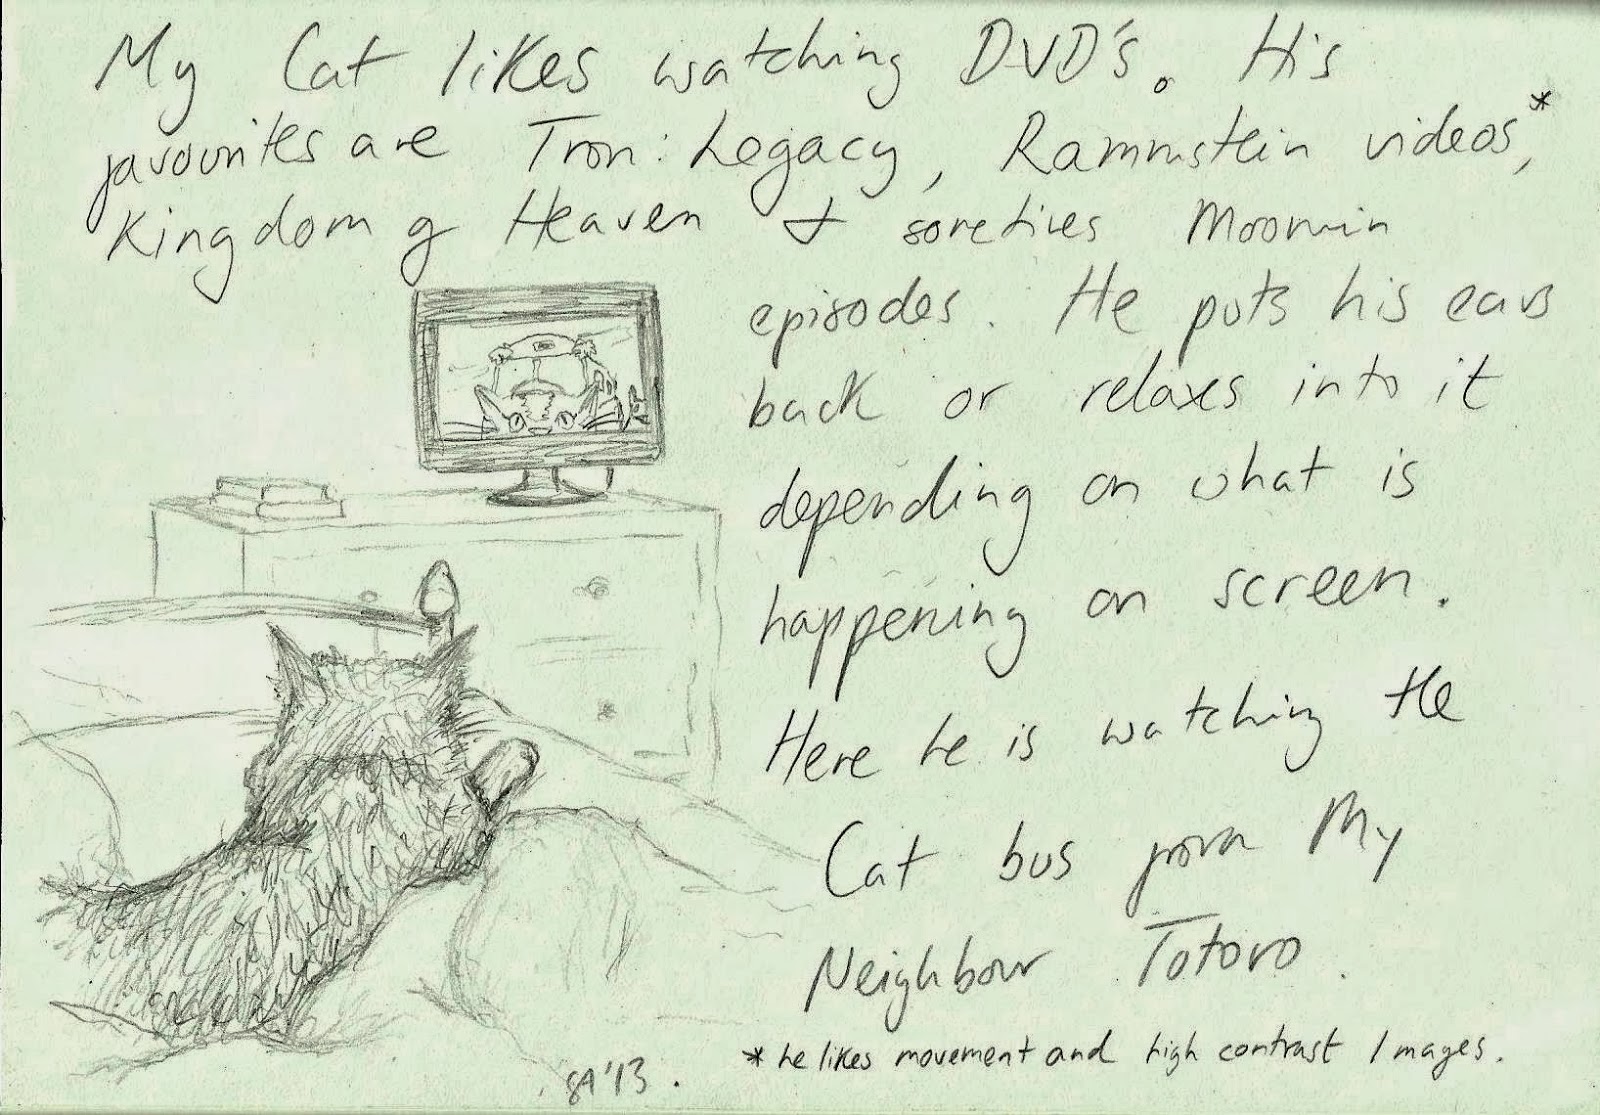 My Cat likes watching DVD's. His
favourites are Tron: Legacy, Rammstein videos,*
Kingdom of Heaven & sometimes Moomin
episodes. He puts his ears
back or relaxes into it
depending on what is
happening on screen.
Here he is watching the
Cat bus from My
Neighbour Totoro.
* he likes movement and high contrast Images.
SA '13.